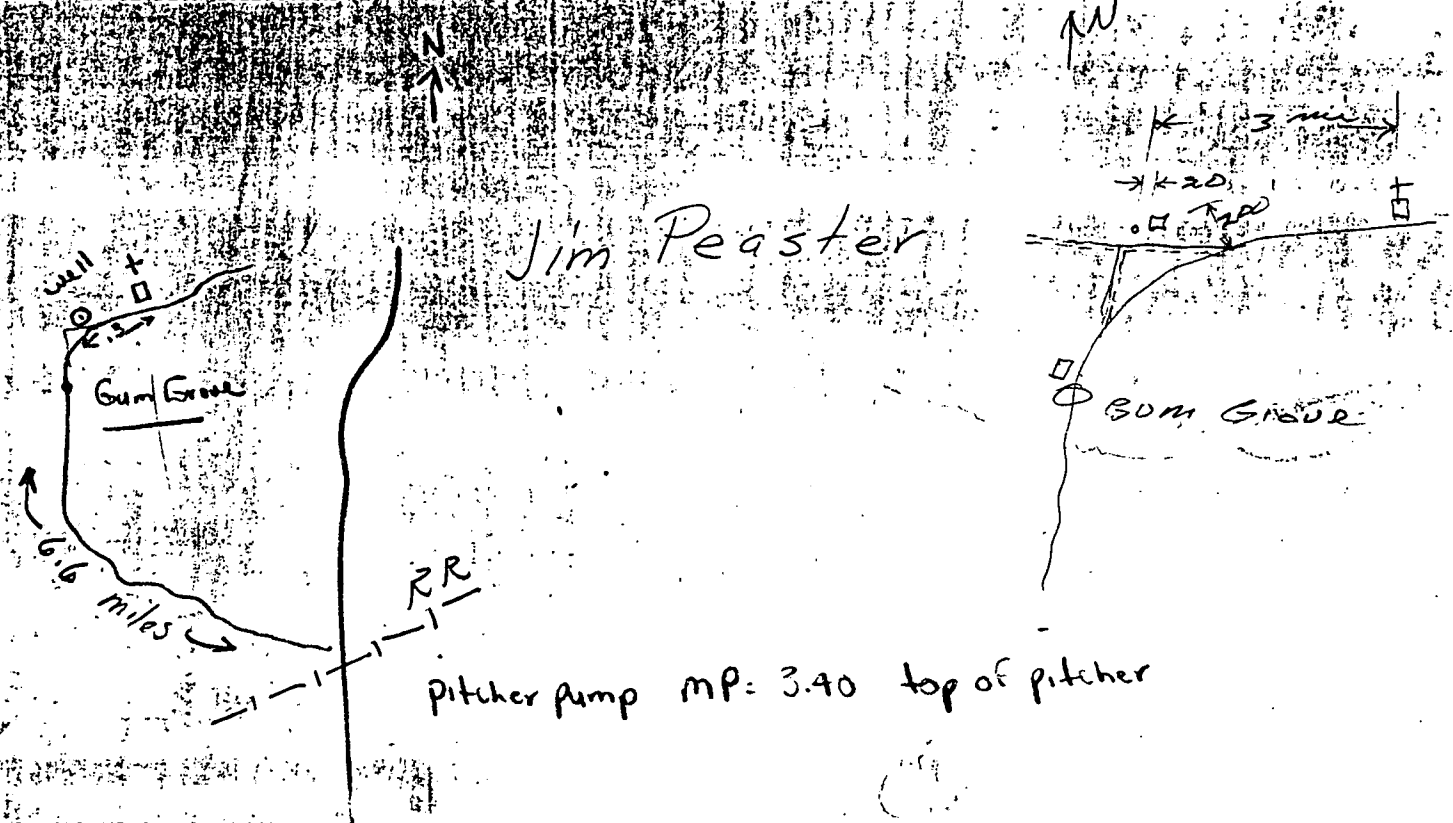 N
N
3 mi
20
200
Jim Peaster
well
.3
Gum Grove
Gum Grove
6.6 miles
RR
pitcher pump MP: 3.40 top of pitcher